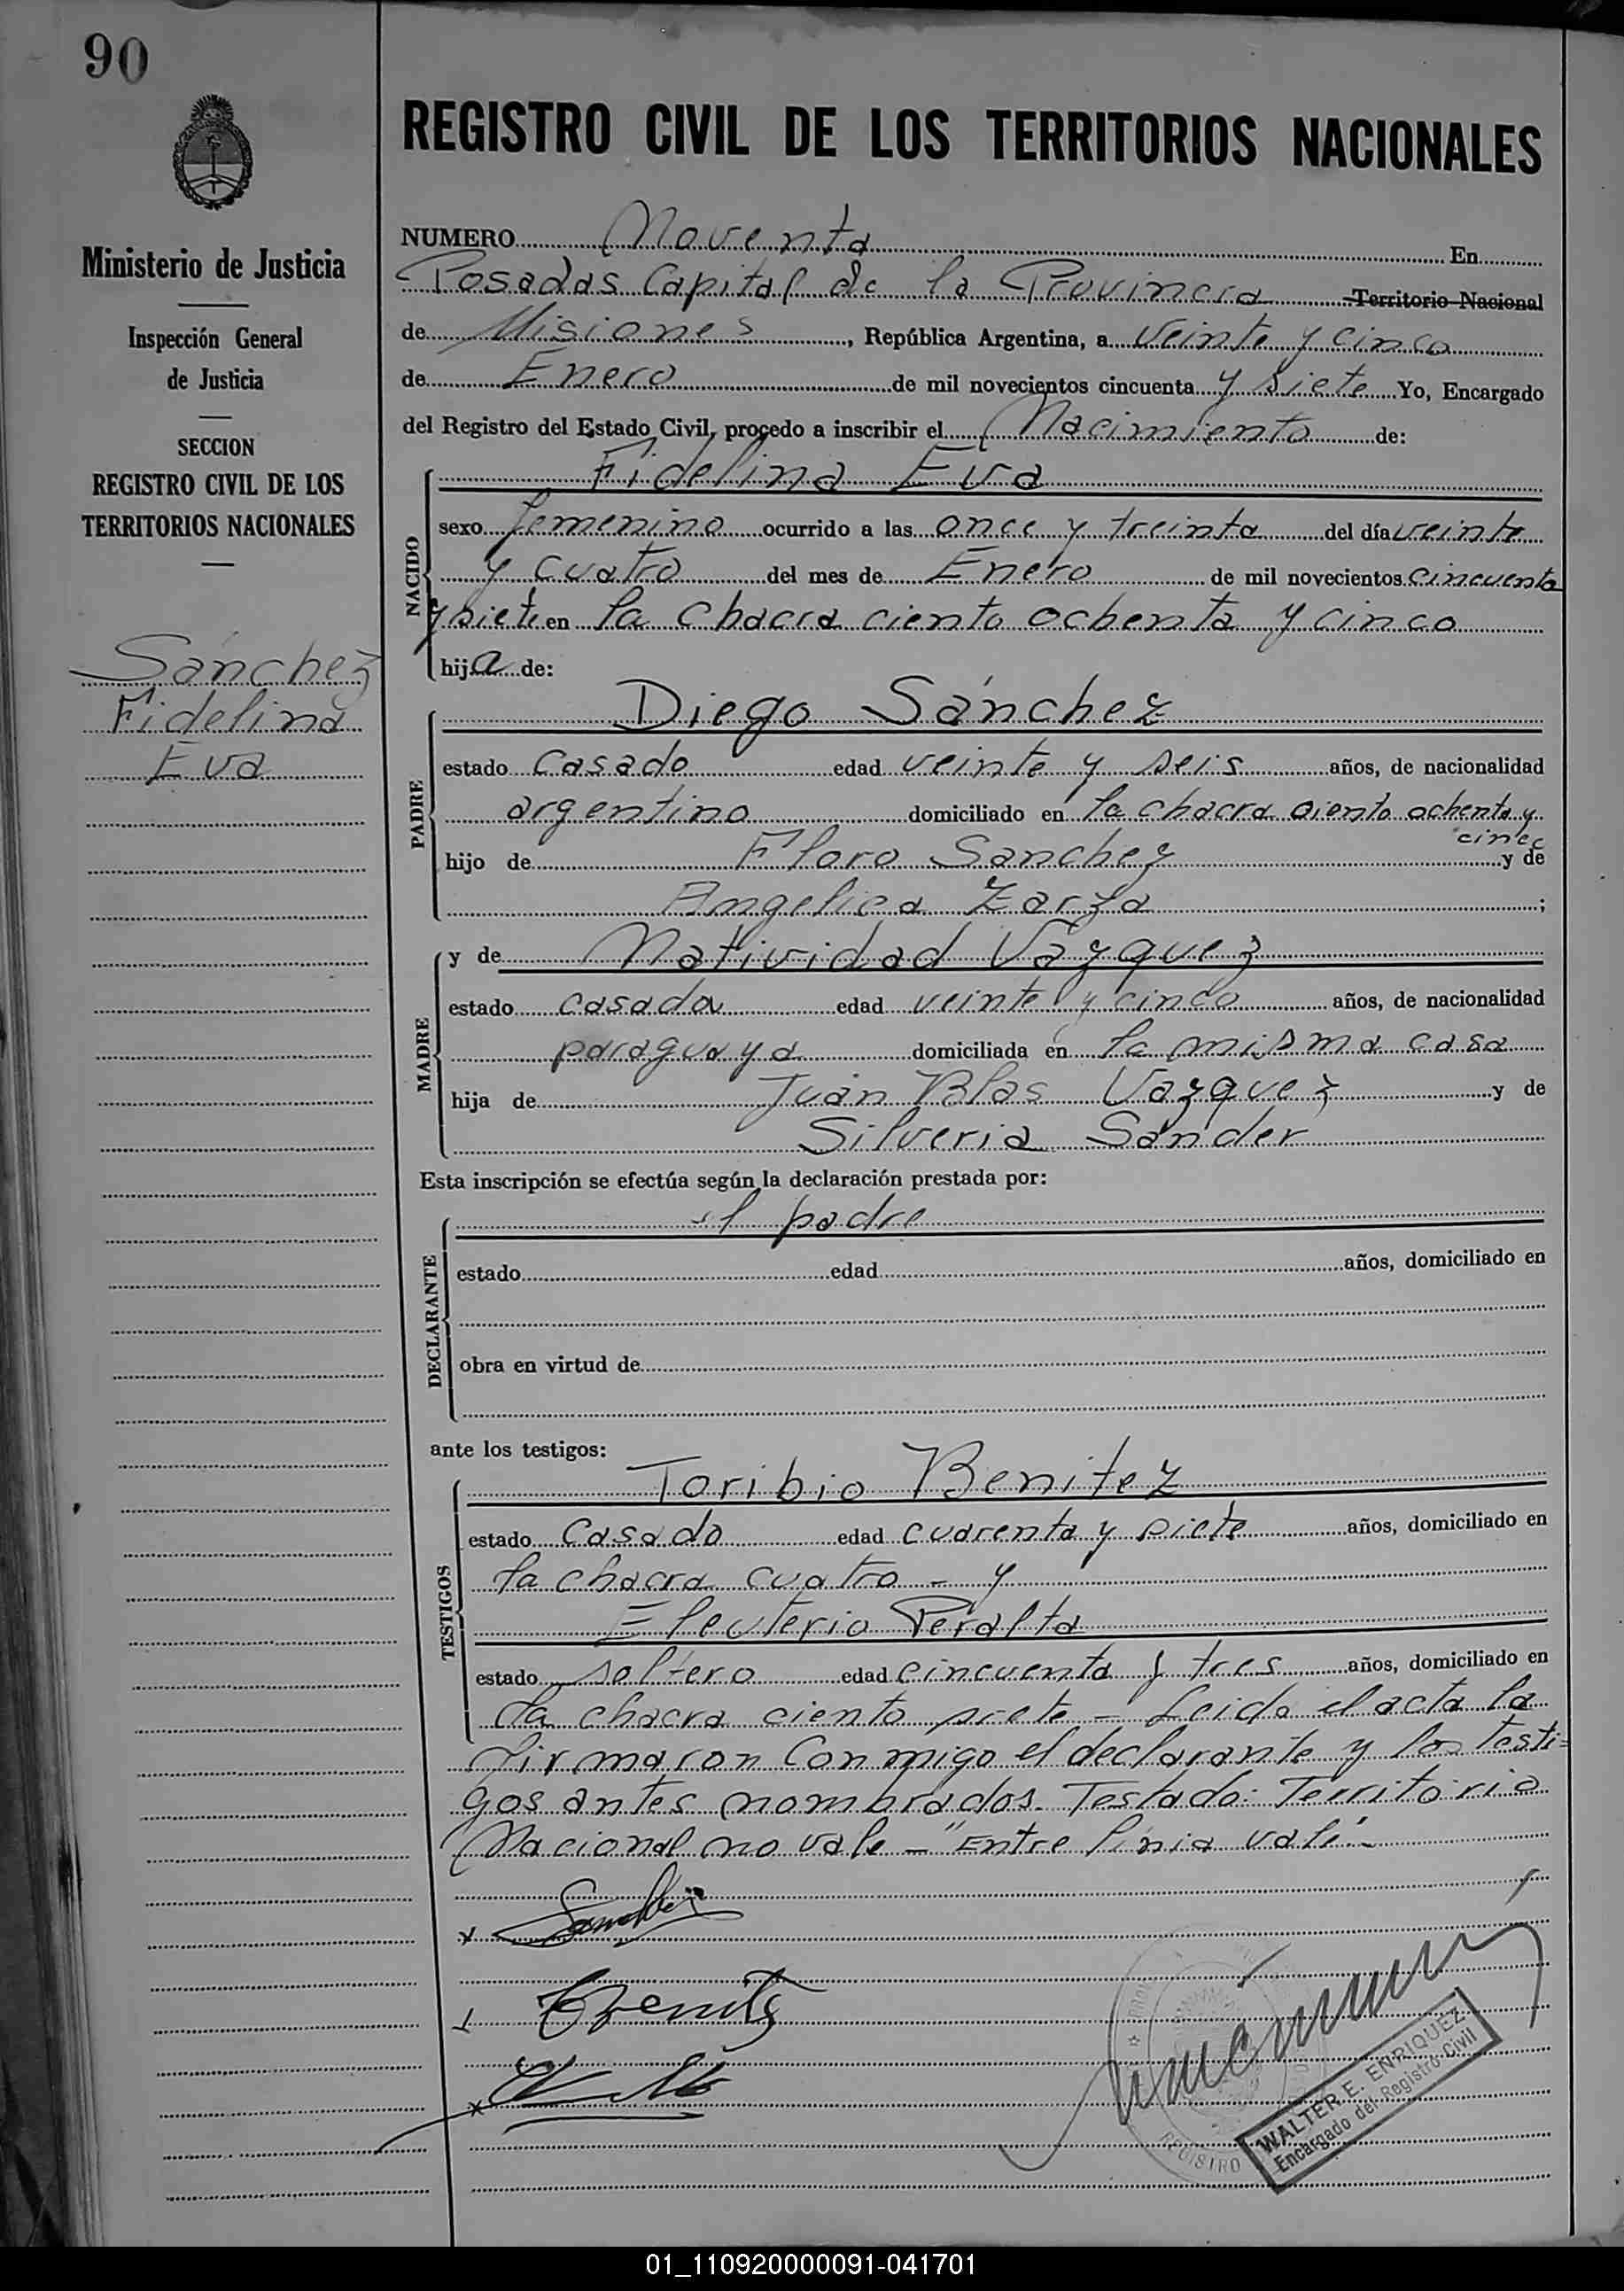 90
REGISTRO CIVIL DE LOS TERRITORIOS NACIONALES
Ministerio de Justicia
Inspección General
de Justicia
SECCION
REGISTRO CIVIL DE LOS
TERRITORIOS NACIONALES
Sánchez
Fidelina
Eva
NUMERO Noventa En
Posadas Capital de la Provincia Territorio Nacional
de Misiones, República Argentina, a veinte y cinco
de Enero de mil novecientos cincuenta y siete Yo, Encargado
del Registro del Estado Civil, procedo a inscribir el Nacimiento de:
NACIDO
Fidelina Eva
sexo femenino ocurrido a las once y treinta del día veinte
y cuatro del mes de Enero de mil novecientos cincuenta
y siete en la chacra ciento ochenta y cinco
hija de:
PADRE
Diego Sánchez
estado casado edad veinte y seis años, de nacionalidad
argentino domiciliado en la chacra ciento ochenta y
cinco
hijo de Floro Sanchez y de
Angelica Zarza ;
MADRE
y de Natividad Vázquez
estado casada edad veinte y cinco años, de nacionalidad
paraguaya domiciliada en la misma casa
hija de Juan Blas Vazquez y de
Silveria Sander
Esta inscripción se efectúa según la declaración prestada por:
DECLARANTE
el padre
estado edad años, domiciliado en
obra en virtud de
ante los testigos:
TESTIGOS
Toribio Benitez
estado casado edad cuarenta y siete años, domiciliado en
la chacra cuatro - y
Eleuterio Peralta
estado soltero edad cincuenta y tres años, domiciliado en
la chacra ciento siete - Leida el acta la
firmaron conmigo el declarante y los testi=
gos antes nombrados. Testado: Territorio
Nacional no vale - "Entre linia vale"-
REGISTRO
WALTER E. ENRIQUEZ
Encargado del Registro Civil
01_110920000091-041701